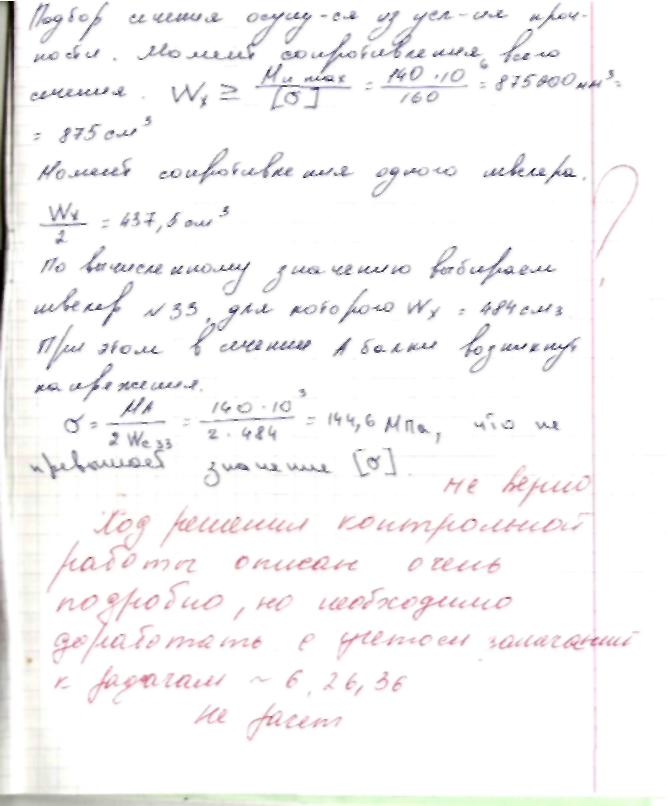 Подбор сечения осущ-ся из усл-ия проч-
ности. Момент сопротивления всего
сечения. Wx ≥ Mи max / [σ] = 140·10⁶ / 160 = 875000 мм³ =
= 875 см³
Момент сопротивления одного швелера.
Wx / 2 = 437,5 см³
По вычисленному значению выбираем
швелер №33, для которого Wx = 484 см3
При этом в сечении А балки возникнут
напряжения.
σ = MA / 2 Wс33 = 140·10³ / 2·484 = 144,6 МПа, что не
превышает значение [σ].
?
не верно
Ход решения контрольной
работы описан очень
подробно, но необходимо
доработать с учетом замечаний
к задачам ~ 6, 26, 36
Не зачет